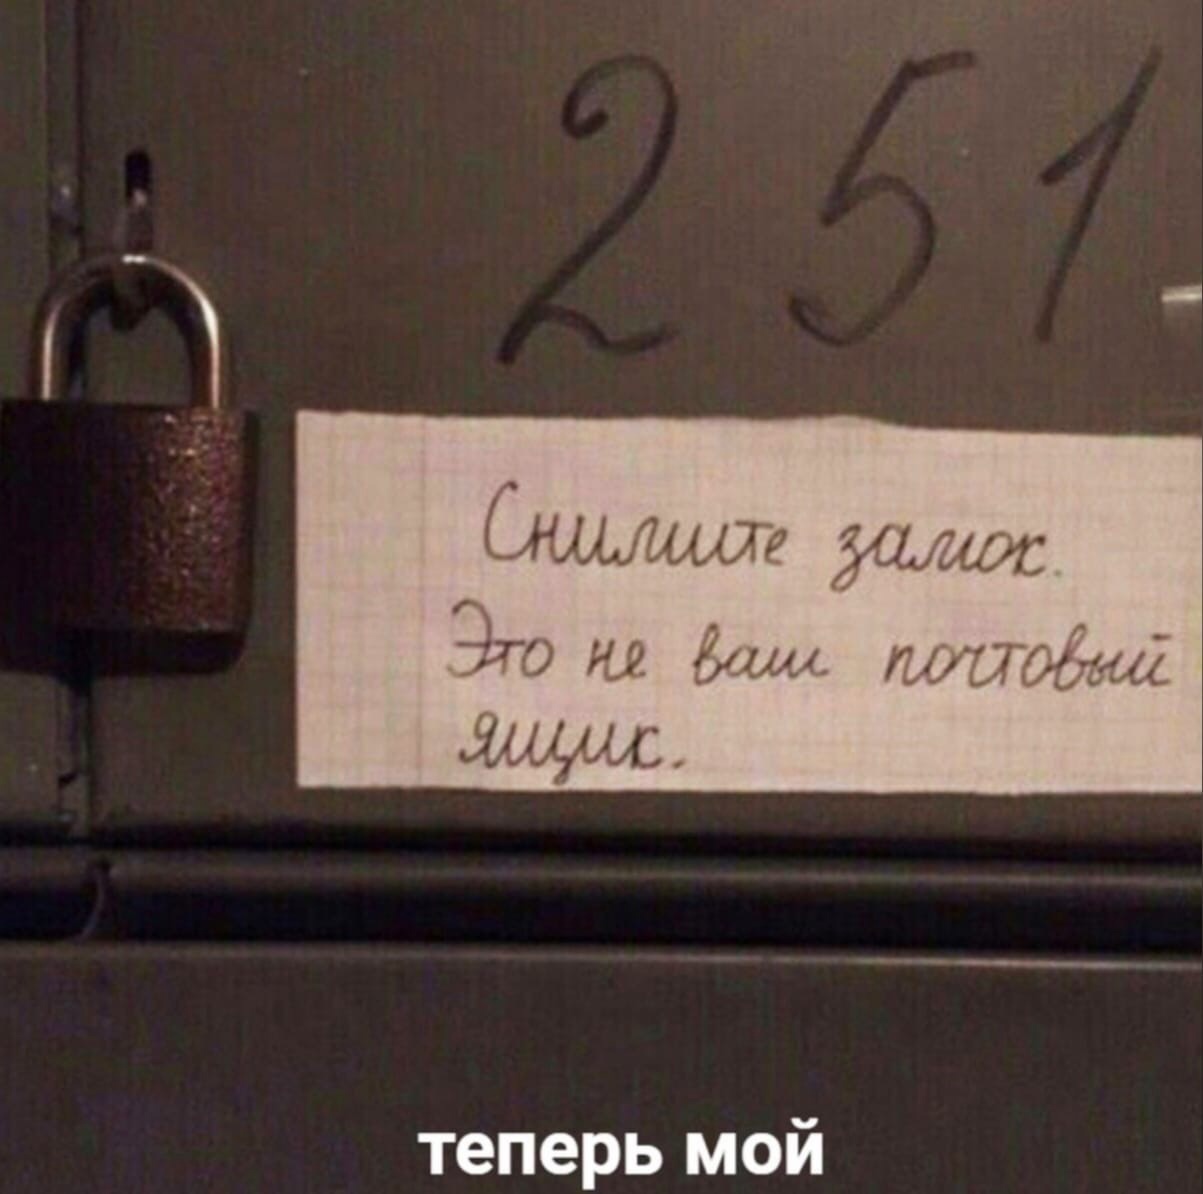 251
Снимите замок.
Это не ваш почтовый
ящик.
теперь мой